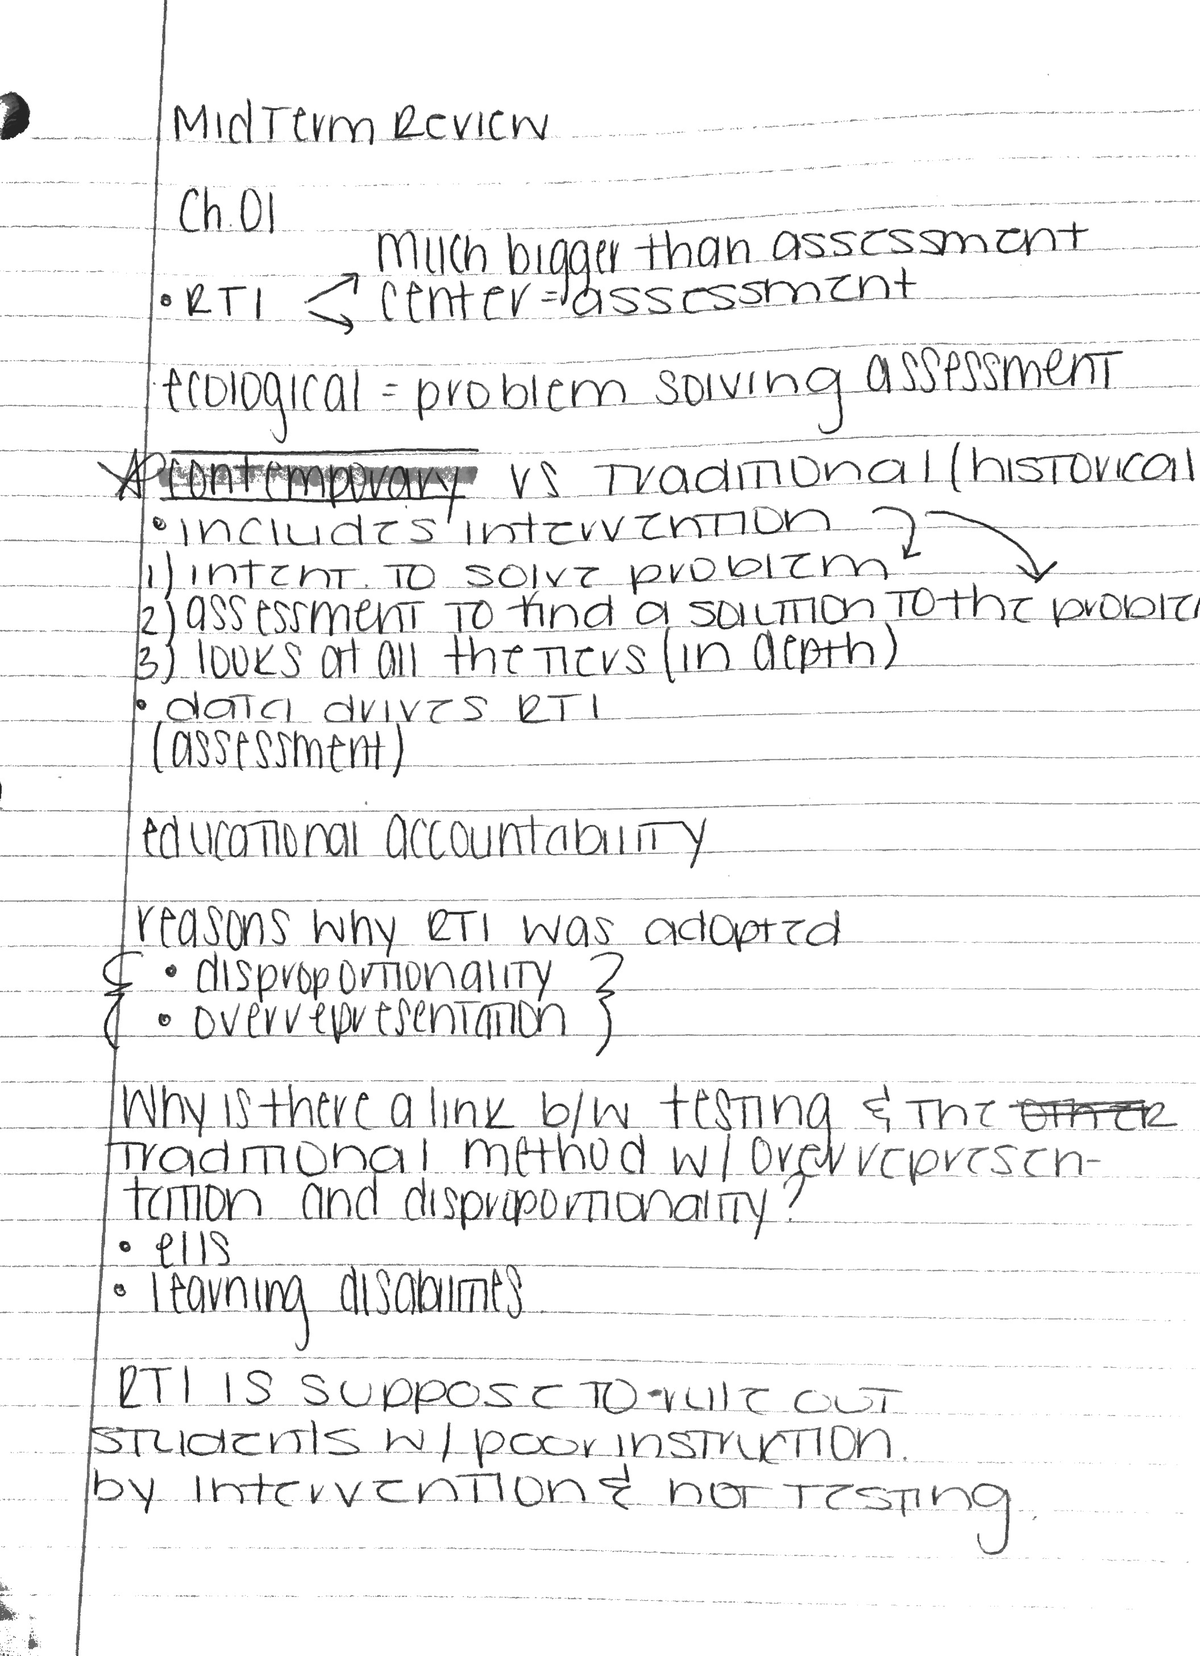 MidTerm Review
Ch. 01
much bigger than assessment
• RTI < center = assessment
ecological = problem solving assessment
contemporary vs Traditional (historical
• includes intervention
1) intent to solve problem
2) assessment to find a solution to the proble
3) looks at all the tiers (in depth)
• data drives RTI
(assessment)
educational accountability
reasons why RTI was adopted
• disproportionality
• overrepresentation
Why is there a link b/w testing & the other
Traditional method w/ overrepresen-
tation and disproportionality?
• ells
• learning disabilities
RTI is suppose to rule out
students w/ poor instruction.
by intervention & not testing.